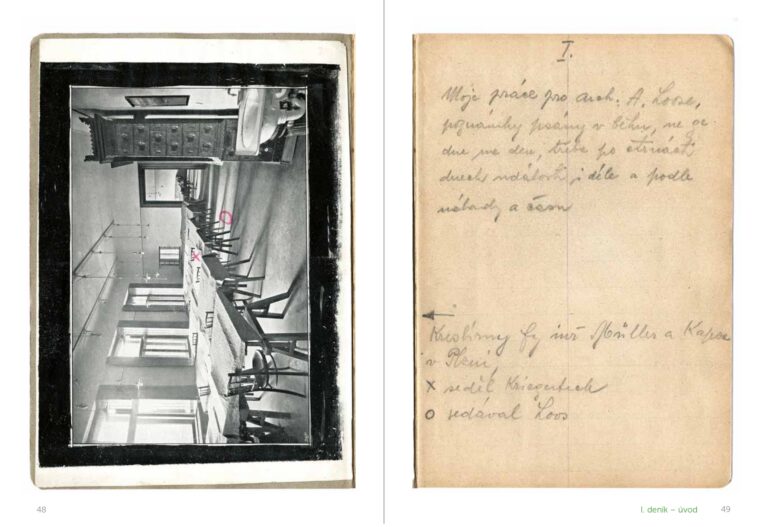 I.
Moje práce pro arch. A. Loose,
poznámky psány v běhu, ne
dne na den, třeba po čtrnácti
dnech událostí, i déle a podle
nálady a času
Kreslírny fy inž Müller a Kapsa
v Plzni,
x seděl Kriegerbeck
o sedával Loos
48
I. deník – úvod 49